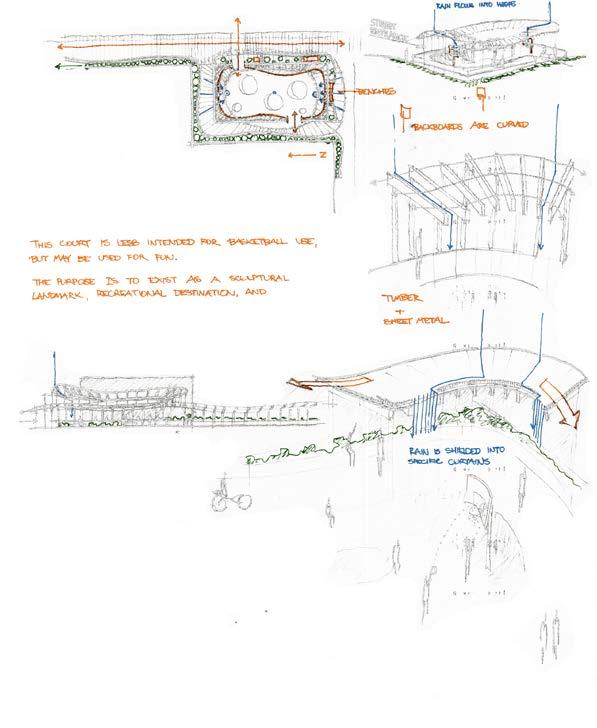 RAIN FLOWS INTO HOOPS
STREET
ENTRANCE
BENCHES
BACKBOARDS ARE CURVED
Z
THIS COURT IS LESS INTENDED FOR BASKETBALL USE,
BUT MAY BE USED FOR FUN.
THE PURPOSE IS TO EXIST AS A SCULPTURAL
LANDMARK, RECREATIONAL DESTINATION, AND
TIMBER
+
SHEET METAL
RAIN IS SHIELDED INTO
SPECIFIC CURTAINS